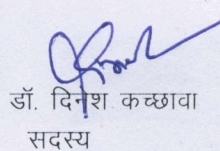 डॉ. दिनेश कच्छावा
सदस्य